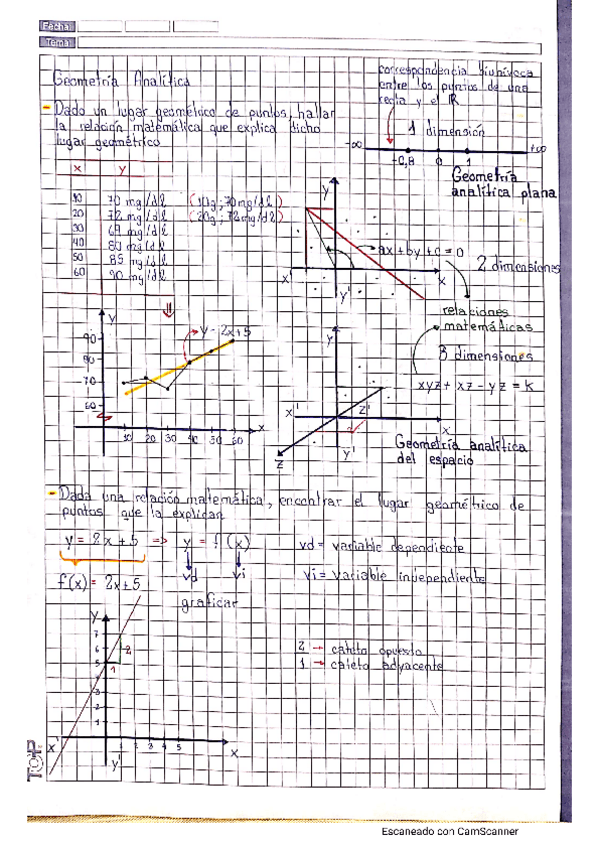 Fecha
Tema
Geometría Analítica
- Dado un lugar geométrico de puntos, hallar
la relación matemática que explica dicho
lugar geométrico
correspondencia biunívoca
entre los puntos de una
recta y el R
1 dimensión
-∞ +∞
-0,8 0 1
Geometría
analítica plana
x y
10 70 mg/dl (10g ; 70mg/dl)
20 72 mg/dl (20g ; 72mg/dl)
30 69 mg/dl
40 80 mg/dl
50 85 mg/dl
60 90 mg/dl
y
x' x
y'
ax + by + c = 0
2 dimensiones
relaciones
matemáticas
3 dimensiones
xyz + xz - yz = k
y
y = 2x + 5
90
80
70
60
10 20 30 40 50 60 x
y
x' z' x
y'
z
Geometría analítica
del espacio
- Dada una relación matemática, encontrar el lugar geométrico de
puntos que la explican
y = 2x + 5 => y = f (x) vd = variable dependiente
f(x) = 2x + 5 vd vi vi = variable independiente
graficar
y
7
6
5
4
3
2
1
2
1
x' 1 2 3 4 5 x
y'
2 → cateto opuesto
1 → cateto adyacente
TOP
Escaneado con CamScanner